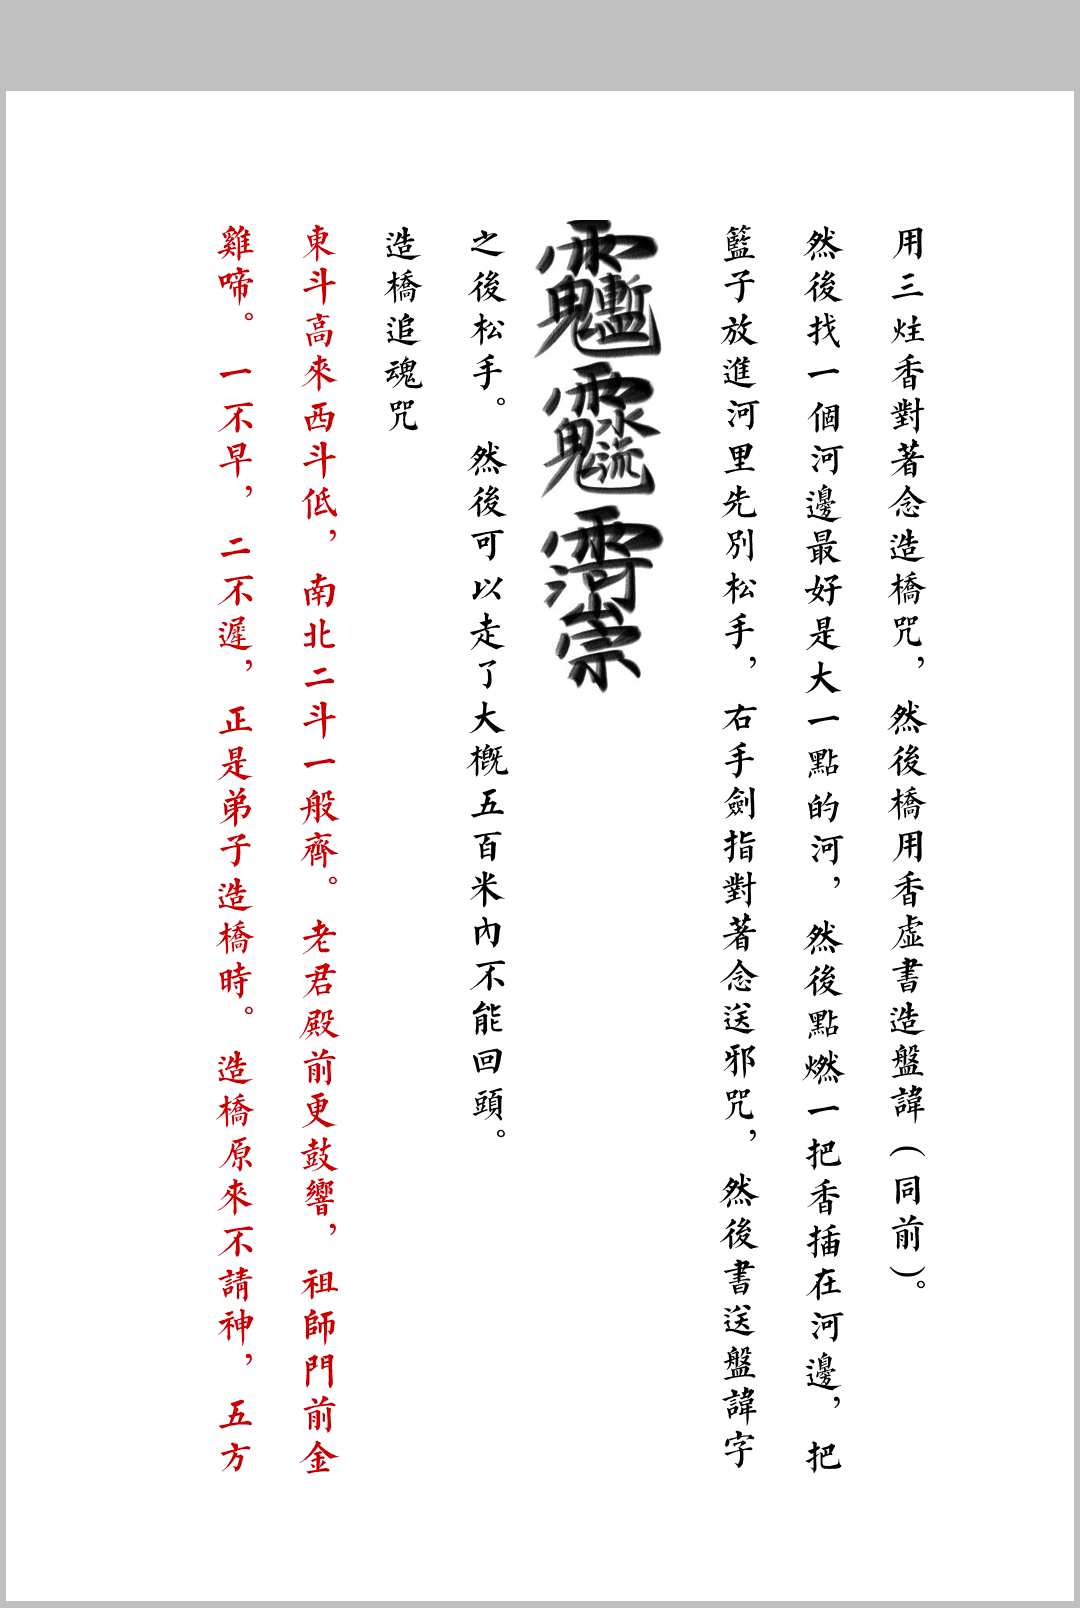 用三炷香對著念造橋咒，然後橋用香虛書造盤諱（同前）。
然後找一個河邊最好是大一點的河，然後點燃一把香插在河邊，把
籃子放進河里先別松手，右手劍指對著念送邪咒，然後書送盤諱字
之後松手。然後可以走了大概五百米內不能回頭。
造橋追魂咒
東斗高來西斗低，南北二斗一般齊。老君殿前更鼓響，祖師門前金
雞啼。一不早，二不遲，正是弟子造橋時。造橋原來不請神，五方